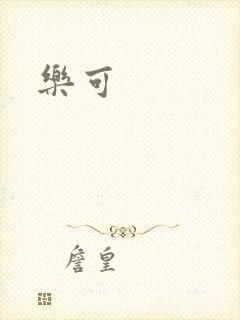 樂可
詹皇